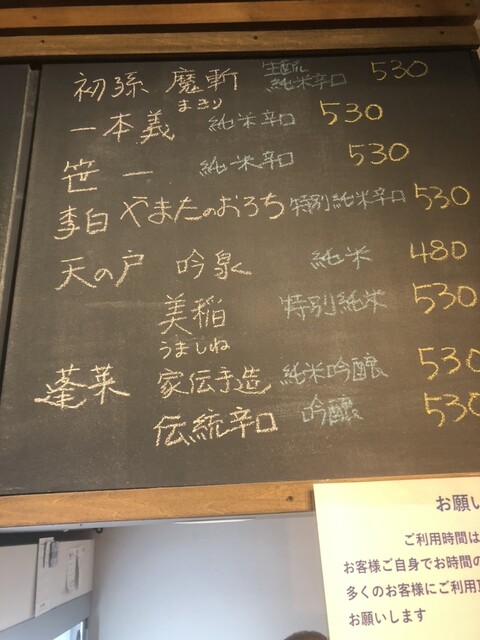 初孫 魔斬 生酛 純米辛口 530
まきり
一本義 純米辛口 530
笹一 純米辛口 530
李白 やまたのおろち 特別純米辛口 530
天の戸 吟泉 純米 480
美稲 特別純米 530
うましね
蓬莱 家伝手造 純米吟醸 530
伝統辛口 吟醸 530
お願い
ご利用時間は
お客様ご自身でお時間の
多くのお客様にご利用
お願いします